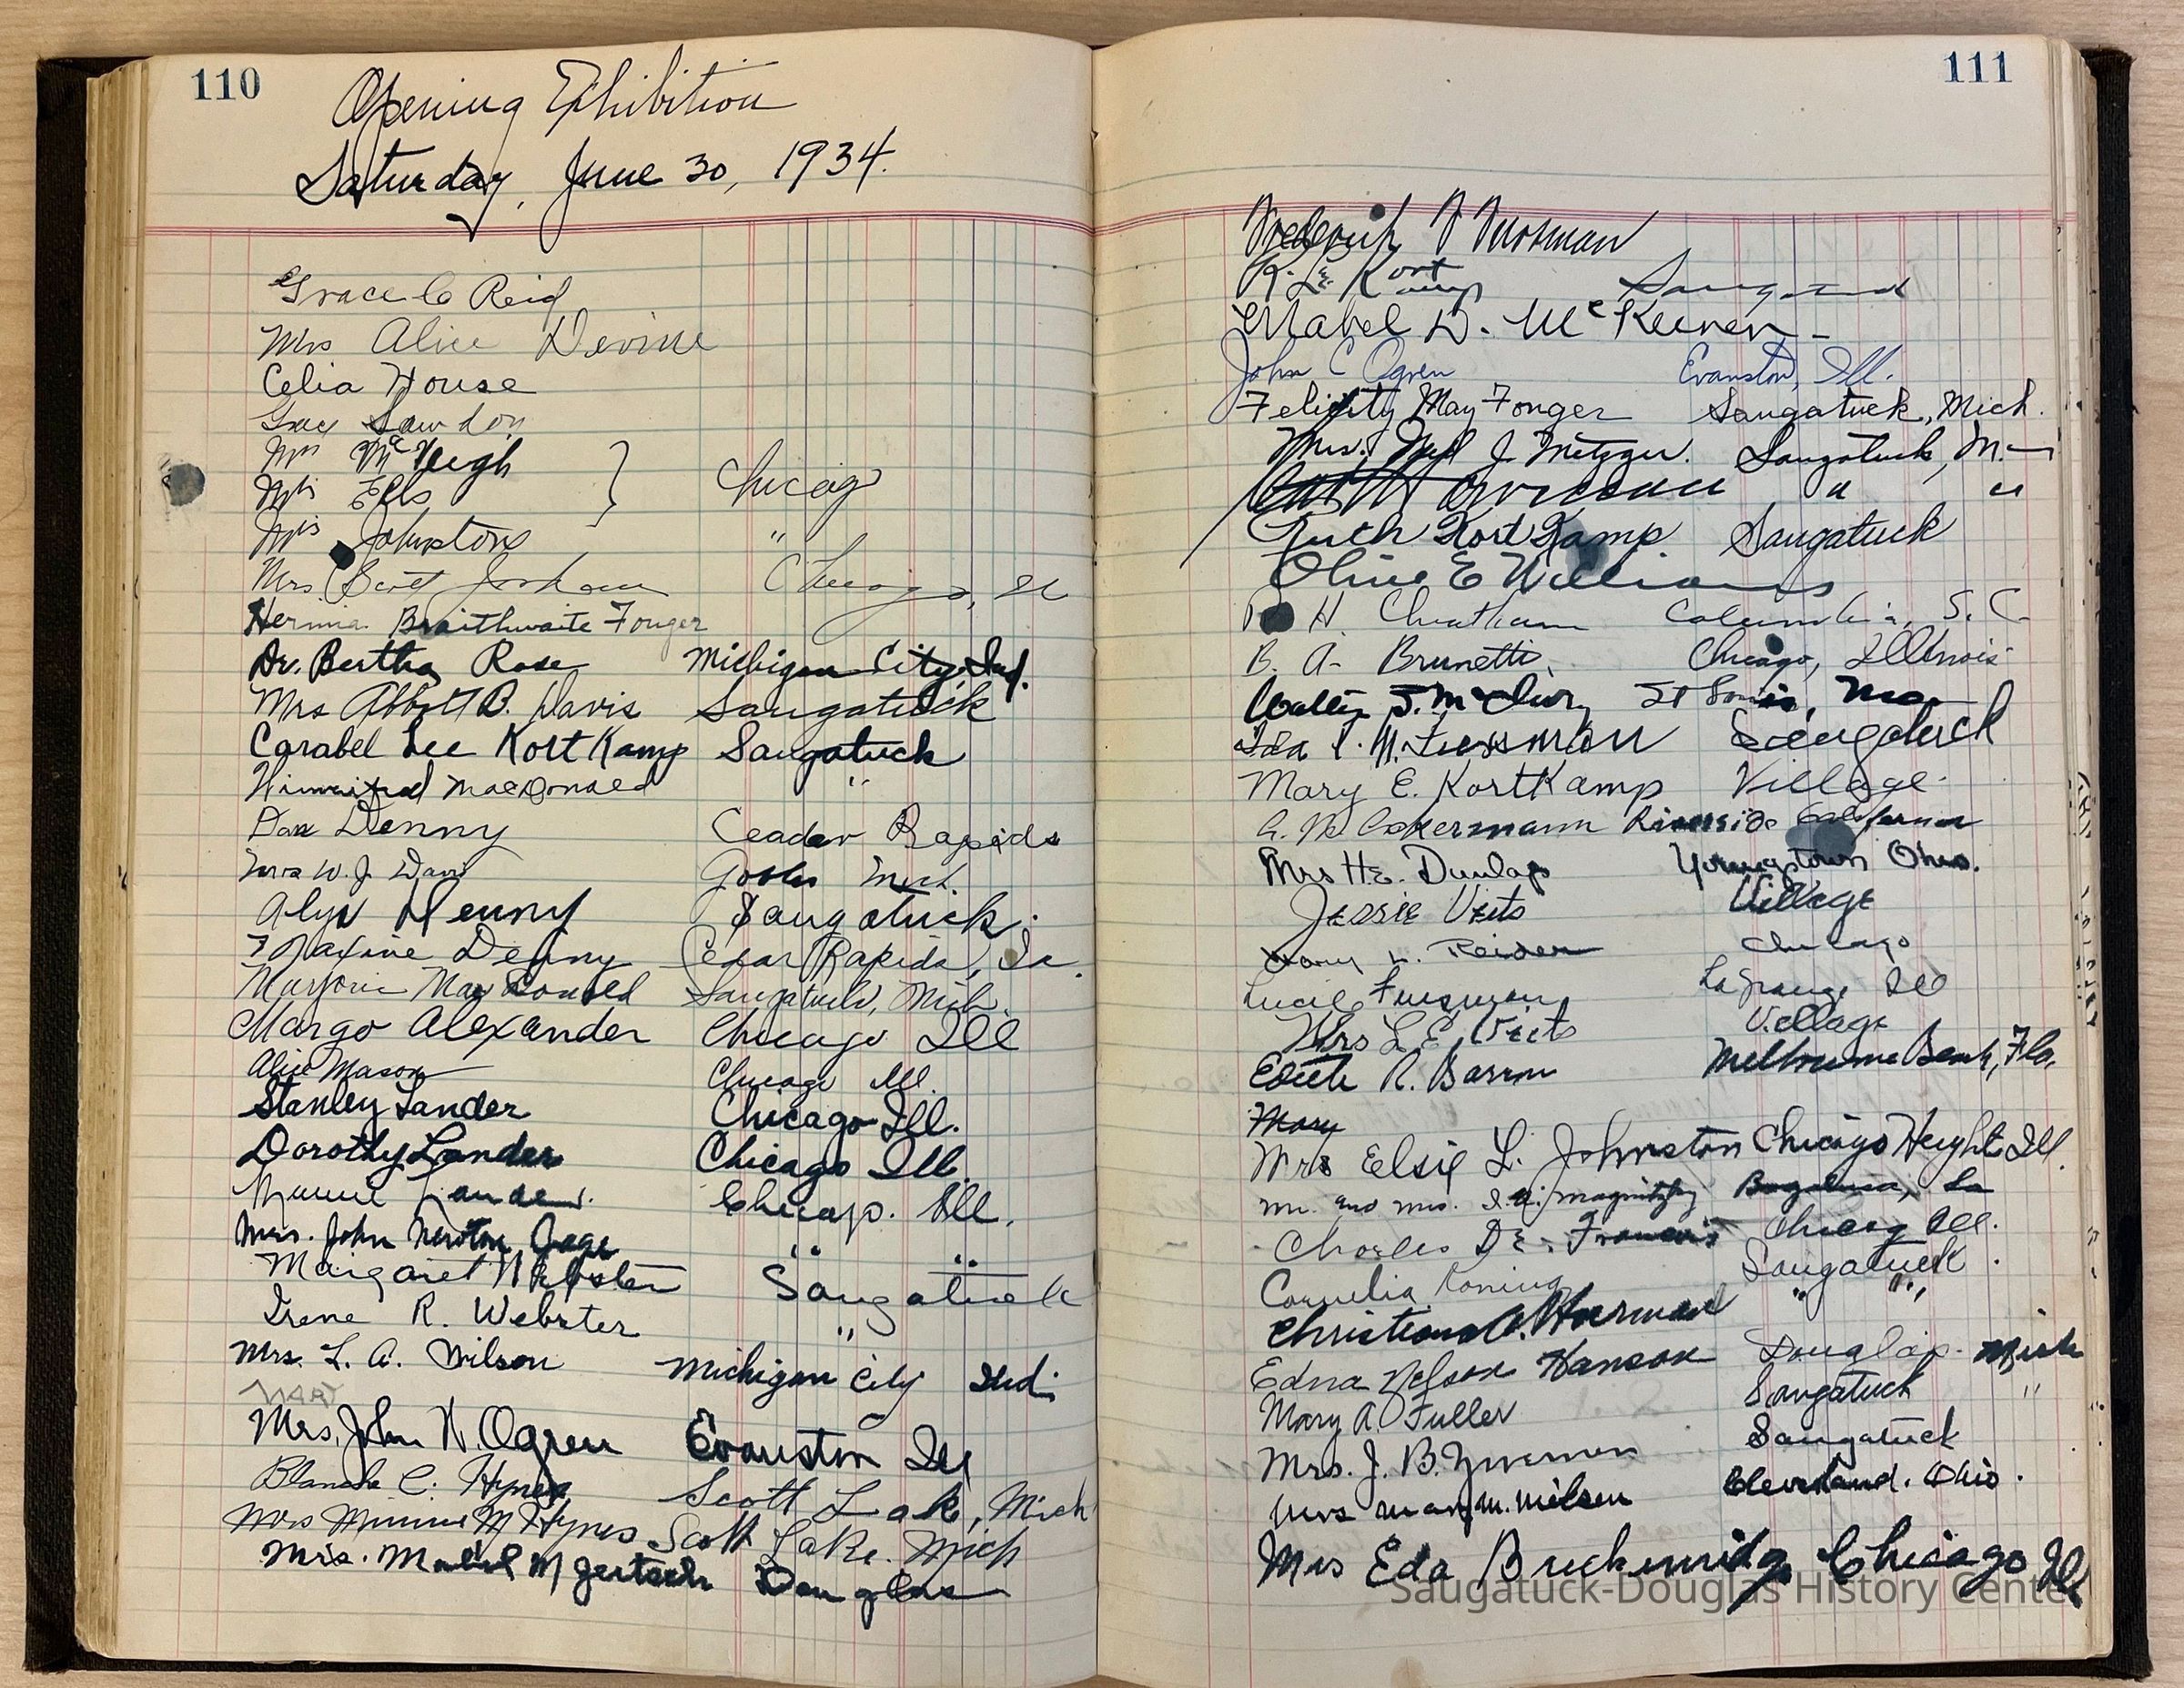 110
Opening Exhibition
Saturday, June 30, 1934.
Grace C Reid
Mrs Alice Devine
Celia House
Sawdon
Mrs McVeigh
Mrs Ells } Chicago
Mrs Johnston "
Mrs Scott Chicago, Ill
Hermina Braithwaite Fonger
Dr. Bertha Rose Michigan City Ind.
Mrs Abbott B. Davis Saugatuck
Carabel Lee KortKamp Saugatuck
Winnifred MacDonald "
Dan Denny Ceadar Rapids
Mrs W. J. Davis Mich.
Alyn Denny Saugatuck.
Maxine Denny Cedar Rapids, Ia.
Marjorie MacDonald Saugatuck, Mich.
Margo Alexander Chicago Ill
Alice Mason Chicago Ill.
Stanley Lander Chicago Ill.
Dorothy Lander Chicago Ill
Lander. Chicago. Ill.
Mrs. John Newton Gage " "
Margaret Webster Saugatuck
Irene R. Webster "
Mrs. L. A. Wilson Michigan City Ind.
MARY
Mrs. John N. Ogren Evanston Ill
Blanche C. Hynes Scott Lake, Mich
Mrs Minnie M Hynes Scott Lake. Mich
Mrs. Mabel M Gertsch Douglas
111
Frederick F Fursman
R. Lee Kortkamp
Mabel D. McKeever
John C Ogren Evanston, Ill.
Felicity May Fonger Saugatuck, Mich.
Mrs. J. Metzger. Saugatuck, M.
" "
Ruth KortKamp Saugatuck
Olive E Williams
H Cheatham Columbia, S. C.
B. A. Brunetti, Chicago, Illinois
Walter St Louis, Mo.
Ida Saugatuck
Mary E. KortKamp Village
Ackermann Riverside California
Mrs H. E. Dunlap Youngstown Ohio.
Jessie Veits Village
Chicago
Lucile Fursman LaGrange Ill
Mrs L E Veits Village
Edith R. Barron Melbourne Beach, Fla.
Mary
Mrs Elsie L. Johnston Chicago Height Ill.
Mr. and Mrs. Bogalusa, La
Charles De Francis Chicago Ill.
Cornelia Koning Saugatuck
Christiana " "
Edna Nelson Hanson Douglas. Mich
Mary A. Fuller Saugatuck "
Mrs. J. B. Saugatuck
Mrs Mary M. Nilsen Cleveland. Ohio.
Mrs Eda Breckenridge Chicago Ill
Saugatuck-Douglas History Center